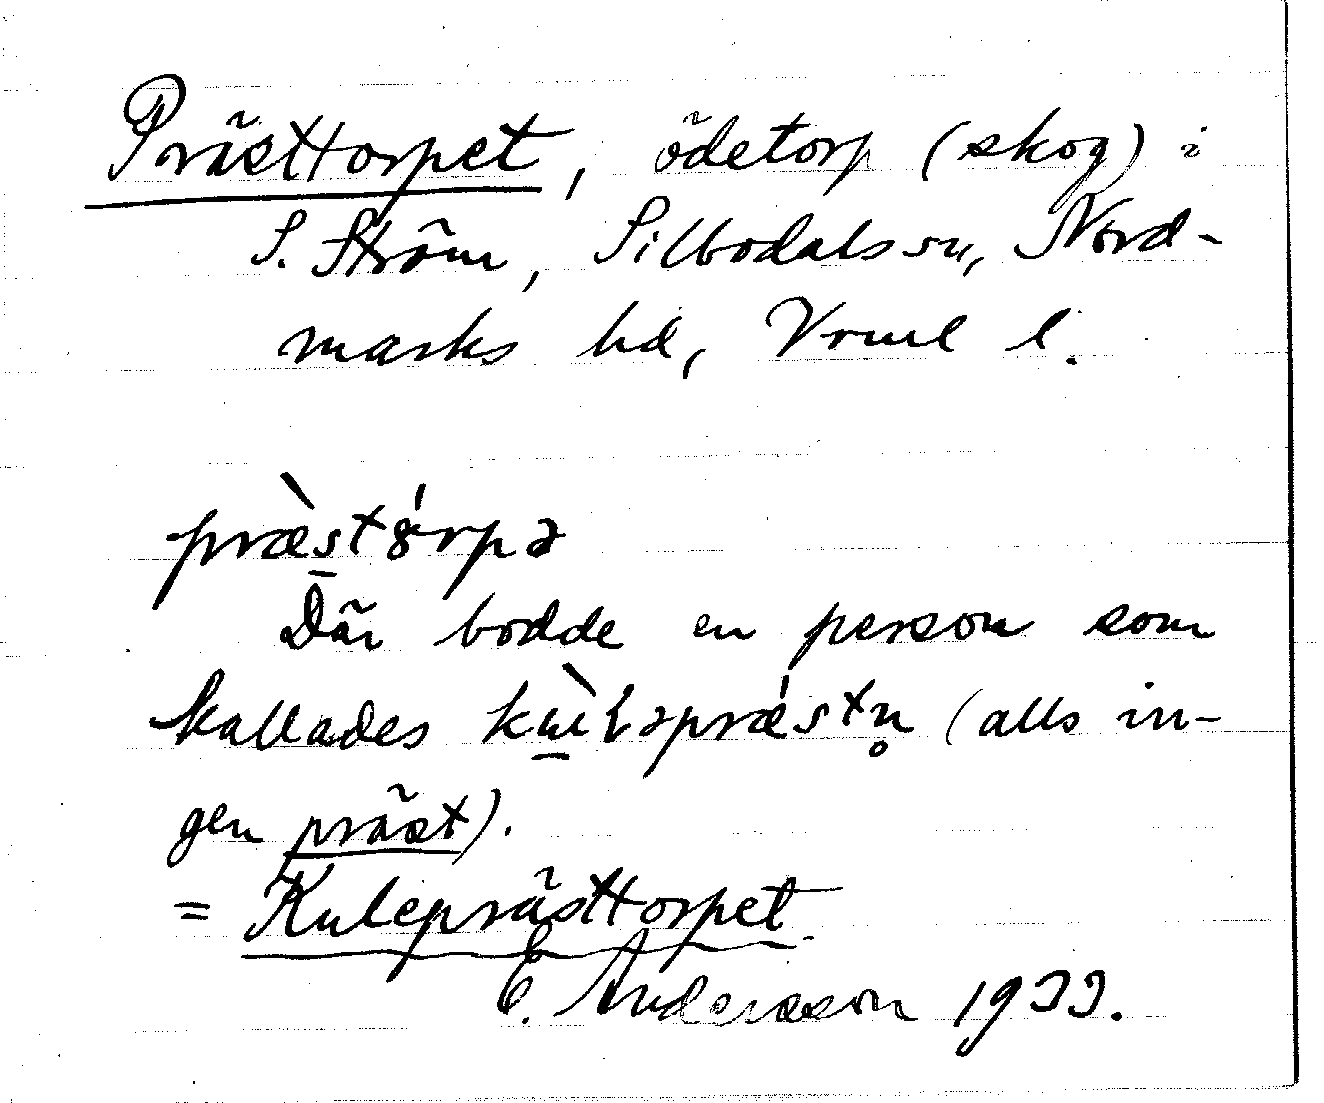 Prästtorpet, ödetorp (skog) i
S. Ström, Silbodals sn, Nord-
marks hd, Vrml l.
præ̀stȣ́rpə
Där bodde en person som
kallades (alls in-
gen präst).
= Kuleprästtorpet.
E. Andersson 1933.